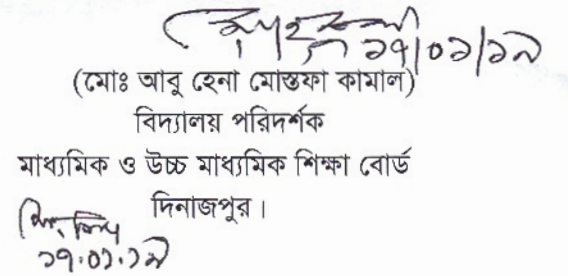 ১৭/০১/১৯
(মোঃ আবু হেনা মোস্তফা কামাল)
বিদ্যালয় পরিদর্শক
মাধ্যমিক ও উচ্চ মাধ্যমিক শিক্ষা বোর্ড
দিনাজপুর ।
১৭.০১.১৯